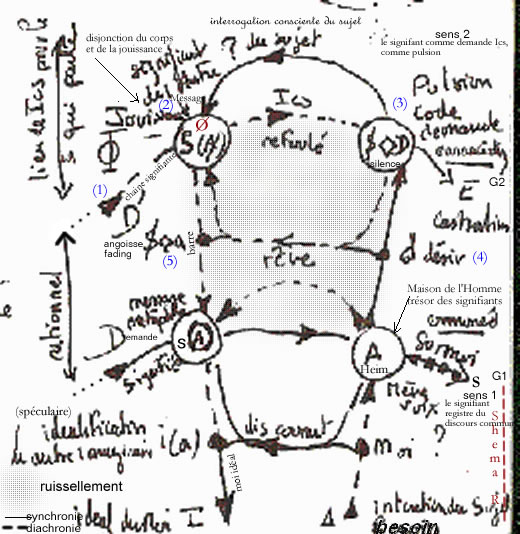 interrogation consciente du sujet
disjonction du corps
et de la jouissance
sens 2
le signifant comme demande Ics,
comme pulsion
? du sujet
signifiant
de l'autre
Message
(2)
Jouis
Ics
(3)
Pulsion
code
demande
Ø
S(A)
refoulé
$◇D
silence
lieu de l'Ics pour le
ça qui parle
(1)
chaine signifiante
E
G2
castration
D
angoisse
fading
$◇a
(5)
barre
rêve
d désir
(4)
rationnel
message
Maison de l'Homme
trésor des signifiants
commun
Demande
s(A)
A
Heim
signifié
s
G1
sens 1
le signifiant
registre du
discours commun
(spéculaire)
identification
i(a)
discourant
moi
?
moi idéal
Shema R
ruissellement
synchronie
diachronie
idéal du moi I
Δ
intention du Sujet
besoin